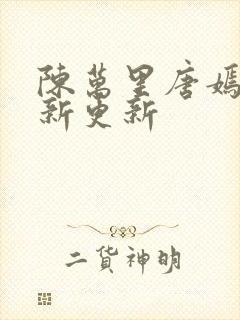 陳萬里唐嫣
新更新
二貨神明